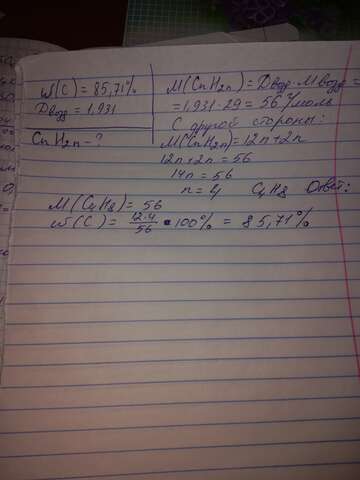 ω(C) = 85,71%
Dвозд = 1,931
CnH2n - ?
M(CnH2n) = Dвозд · Mвозд =
= 1,931 · 29 = 56 г/моль
С другой стороны:
M(CnH2n) = 12n + 2n
12n + 2n = 56
14n = 56
n = 4 C4H8 Ответ:
M(C4H8) = 56
ω(C) = 12·4/56 · 100% = 85,71%